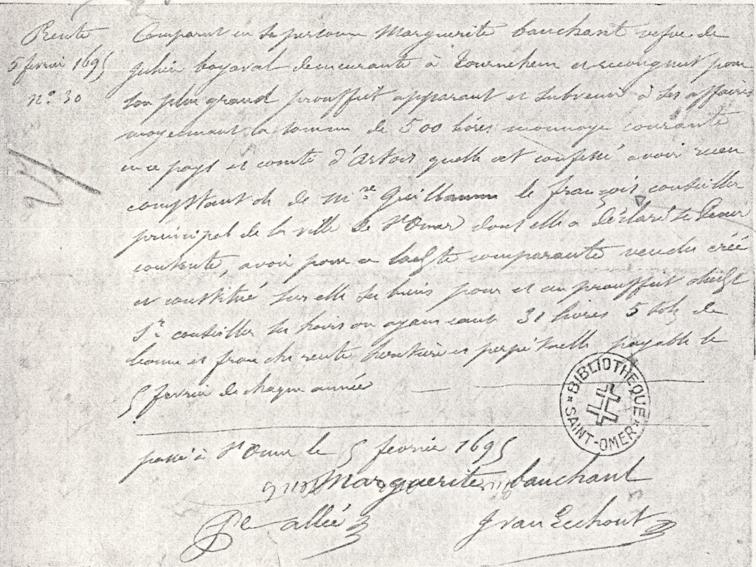 Rente
5 février 1695
n° 30
Comparut en sa personne Marguerite bauchant vefve de
Julien bayaval demeurante à Tournehem et recongnut pour
son plus grand prouffit apparant et subvenir à ses affaires
moyennant la somme de 500 livres monnoye courante
en ce pays et comté d'Artois quelle at confessé avoir receu
comptant de Mre Guillaume le françois conseiller
principal de la ville de St Omer dont elle a déclaré se tenir
contente, avoir pour ce ladte comparante vendu créé
et constitué sur elle ses biens pour et au prouffit dudt
Sr conseiller ses hoirs ou ayans cause 31 livres 5 sols de
bonne et franche rente héritière et perpétuelle payable le
5 février de chaque année
passé à St Omer le 5 février 1695
Marguerite bauchant
allée
J van Eechout
BIBLIOTHEQUE
SAINT-OMER